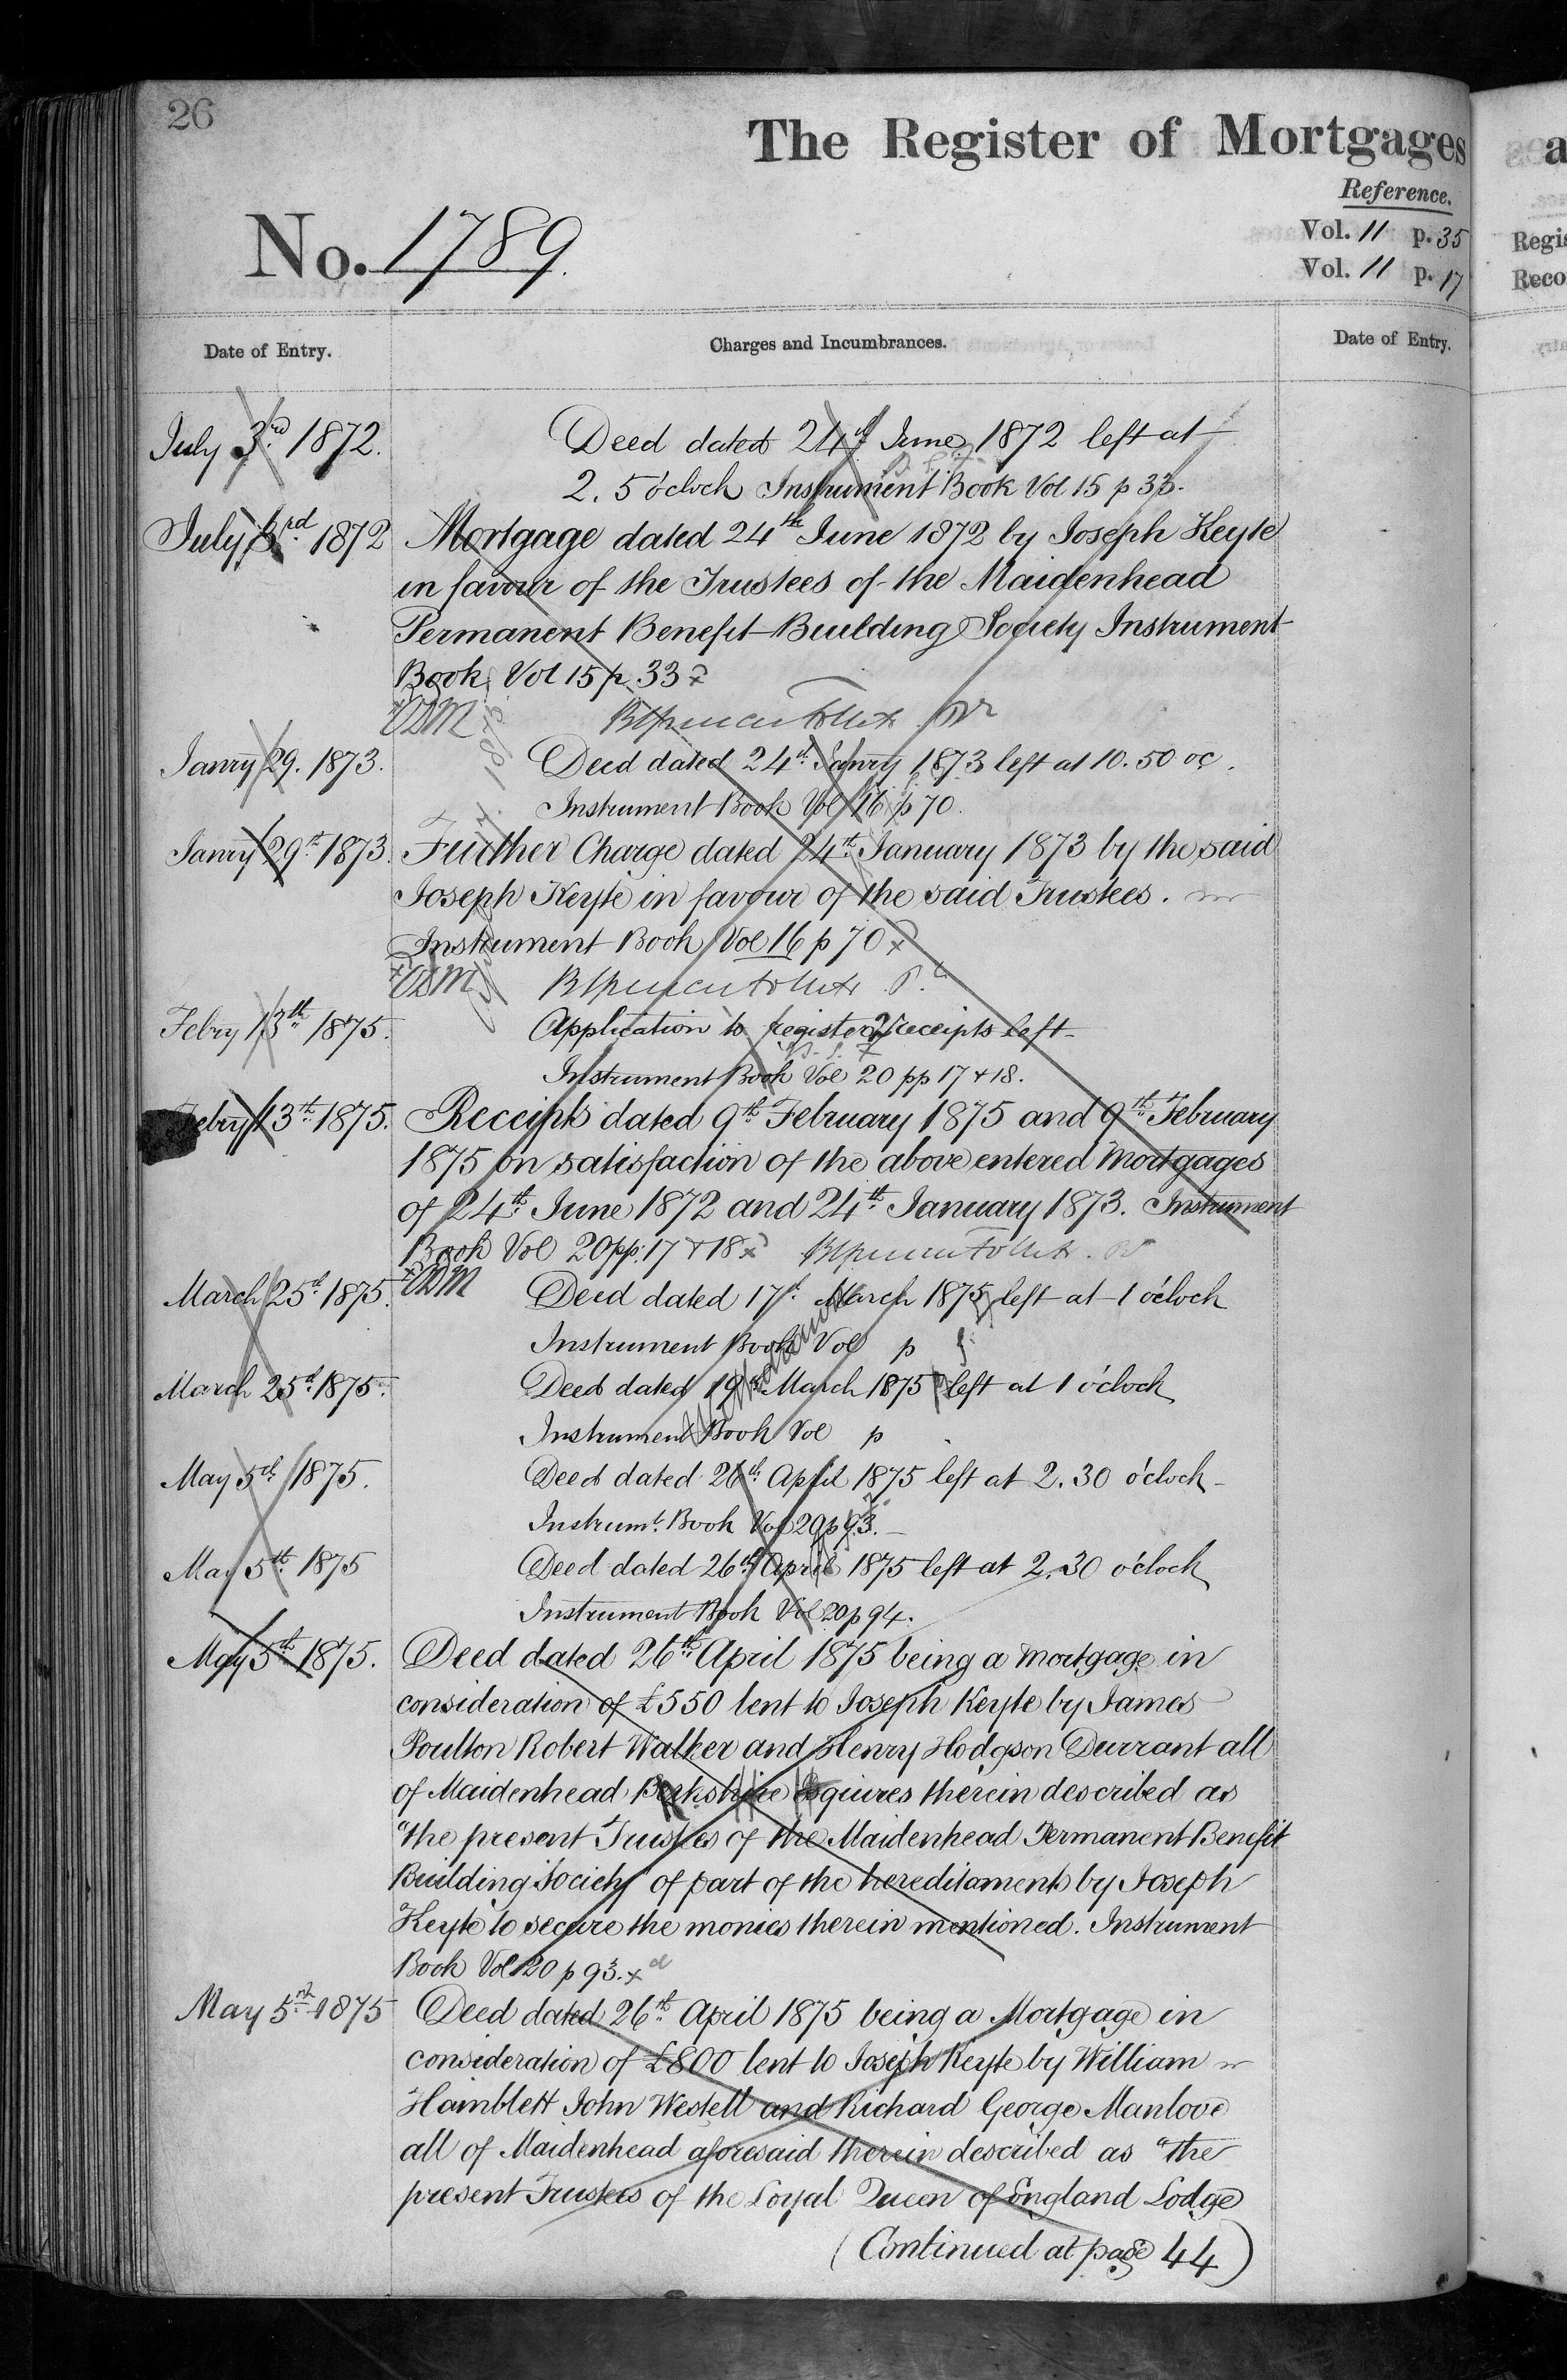 26
The Register of Mortgages
Reference.
No. 1789.
Vol. 11 p. 35
Vol. 11 p. 17
Regis
Reco
Date of Entry.
Charges and Incumbrances.
Date of Entry.
July 3rd 1872. Deed dated 24th June 1872 left at
2.5 o'clock Instrument Book Vol 15 p 33.
July 3rd 1872 Mortgage dated 24th June 1872 by Joseph Keyte
in favour of the Trustees of the Maidenhead
Permanent Benefit Building Society Instrument
Book Vol 15 p 33 x
Janry 29. 1873. Deed dated 24th Janry 1873 left at 10.50 oc.
Instrument Book Vol 16 p 70.
Janry 29th 1873. Further Charge dated 24th January 1873 by the said
Joseph Keyte in favour of the said Trustees.
Instrument Book Vol 16 p 70 x
Febry 13th 1875. Application to register 2 receipts left
Instrument Book Vol 20 pp 17 + 18.
Febry 13th 1875. Receipts dated 9th February 1875 and 9th February
1875 on satisfaction of the above entered Mortgages
of 24th June 1872 and 24th January 1873. Instrument
Book Vol 20 pp. 17 + 18 x
March 25th 1875. Deed dated 17th March 1875 left at 1 o'clock
Instrument Book Vol p
March 25th 1875. Deed dated 19th March 1875 left at 1 o'clock
Instrument Book Vol p
May 5th 1875. Deed dated 26th April 1875 left at 2.30 o'clock
Instrumt. Book Vol 20 p 93.
May 5th 1875 Deed dated 26th April 1875 left at 2.30 o'clock
Instrument Book Vol 20 p 94.
May 5th 1875. Deed dated 26th April 1875 being a Mortgage in
consideration of £550 lent to Joseph Keyte by James
Poulton Robert Walker and Henry Hodgson Durrant all
of Maidenhead Berkshire Esquires therein described as
"the present Trustees of the Maidenhead Permanent Benefit
Building Society" of part of the hereditaments by Joseph
Keyte to secure the monies therein mentioned. Instrument
Book Vol 20 p 93. x
May 5th 1875 Deed dated 26th April 1875 being a Mortgage in
consideration of £800 lent to Joseph Keyte by William
Hamblett John Westell and Richard George Manlove
all of Maidenhead aforesaid therein described as "the
present Trustees of the Loyal Queen of England Lodge
(Continued at page 44)